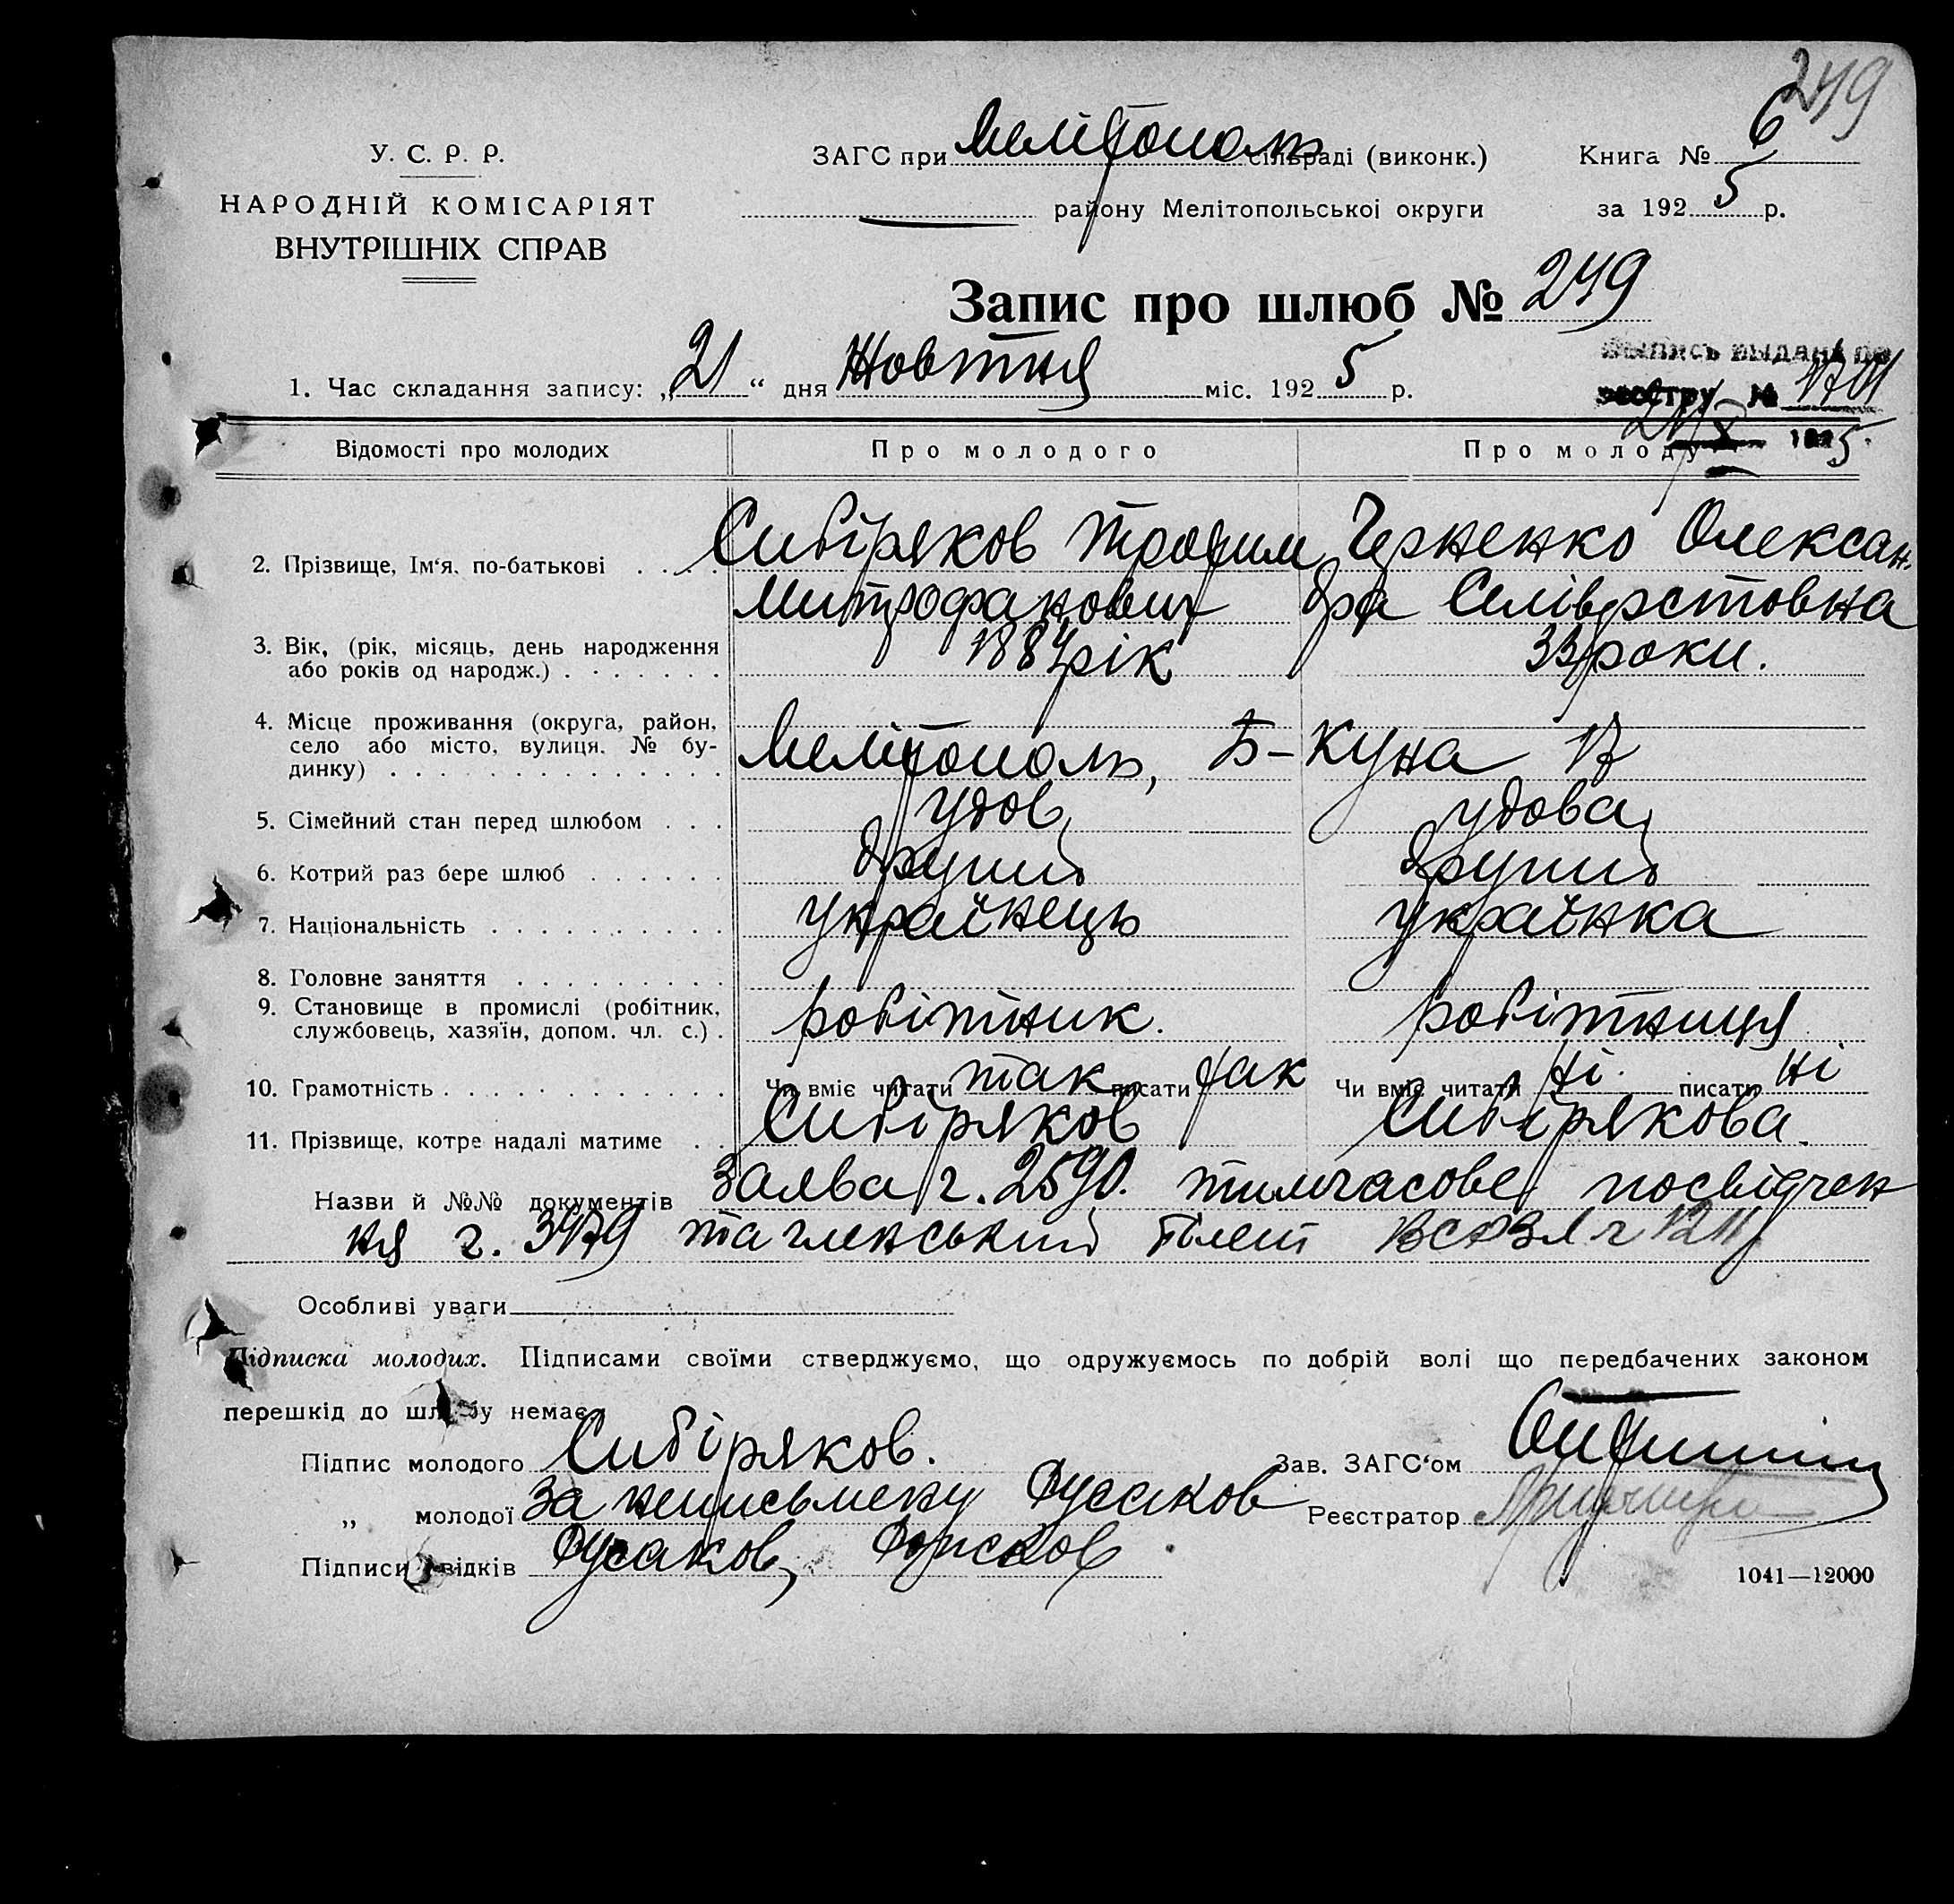 249
У. С. Р. Р.
НАРОДНІЙ КОМІСАРІЯТ
ВНУТРІШНІХ СПРАВ
ЗАГС при Мелітополь сільраді (виконк.)
району Мелітопольської округи
Книга № 6
за 1925 р.
Запис про шлюб № 249
1. Час складання запису: „21“ дня Жовтня міс. 1925 р.
Выпись выдана по
реестру № 1701
21/X 1925
Відомості про молодих Про молодого Про молоду
2. Прізвище, Ім‘я, по-батькові . . . . Сибіряков Трофим Черненко Олексан-
Митрофанович дра Селіверстовна
3. Вік, (рік, місяць, день народження
або років од народж.) . . . . . . . 1884 рік 33 роки.
4. Місце проживання (округа, район,
село або місто, вулиця, № бу-
динку) . . . . . . . . . . . . . . Мелітополь, Б-Куна 17
5. Сімейний стан перед шлюбом . . . удов. удова
6. Котрий раз бере шлюб . . . . . . другий другий
7. Національність . . . . . . . . . . українець українка
8. Головне заняття . . . . . . . . .
9. Становище в промислі (робітник,
службовець, хазяїн, допом. чл. с.) . робітник. робітниця
10. Грамотність . . . . . . . . . . . . Чи вміє читати так писати так Чи вміє читати ні. писати ні
11. Прізвище, котре надалі матиме . . Сибіряков Сибірякова.
Назви й №№ документів Заява ч. 2590. тимчасове посвідчен
ня ч. 3479 та членський білет ч 1211
Особливі уваги
Підписка молодих. Підписами своїми стверджуємо, що одружуємось по добрій волі що передбачених законом
перешкід до шлюбу немає.
Підпис молодого Сибіряков. Зав. ЗАГС‘ом
„ молодої За неписьмену Русаков Реєстратор
Підписи свідків Русаков,
1041—12000